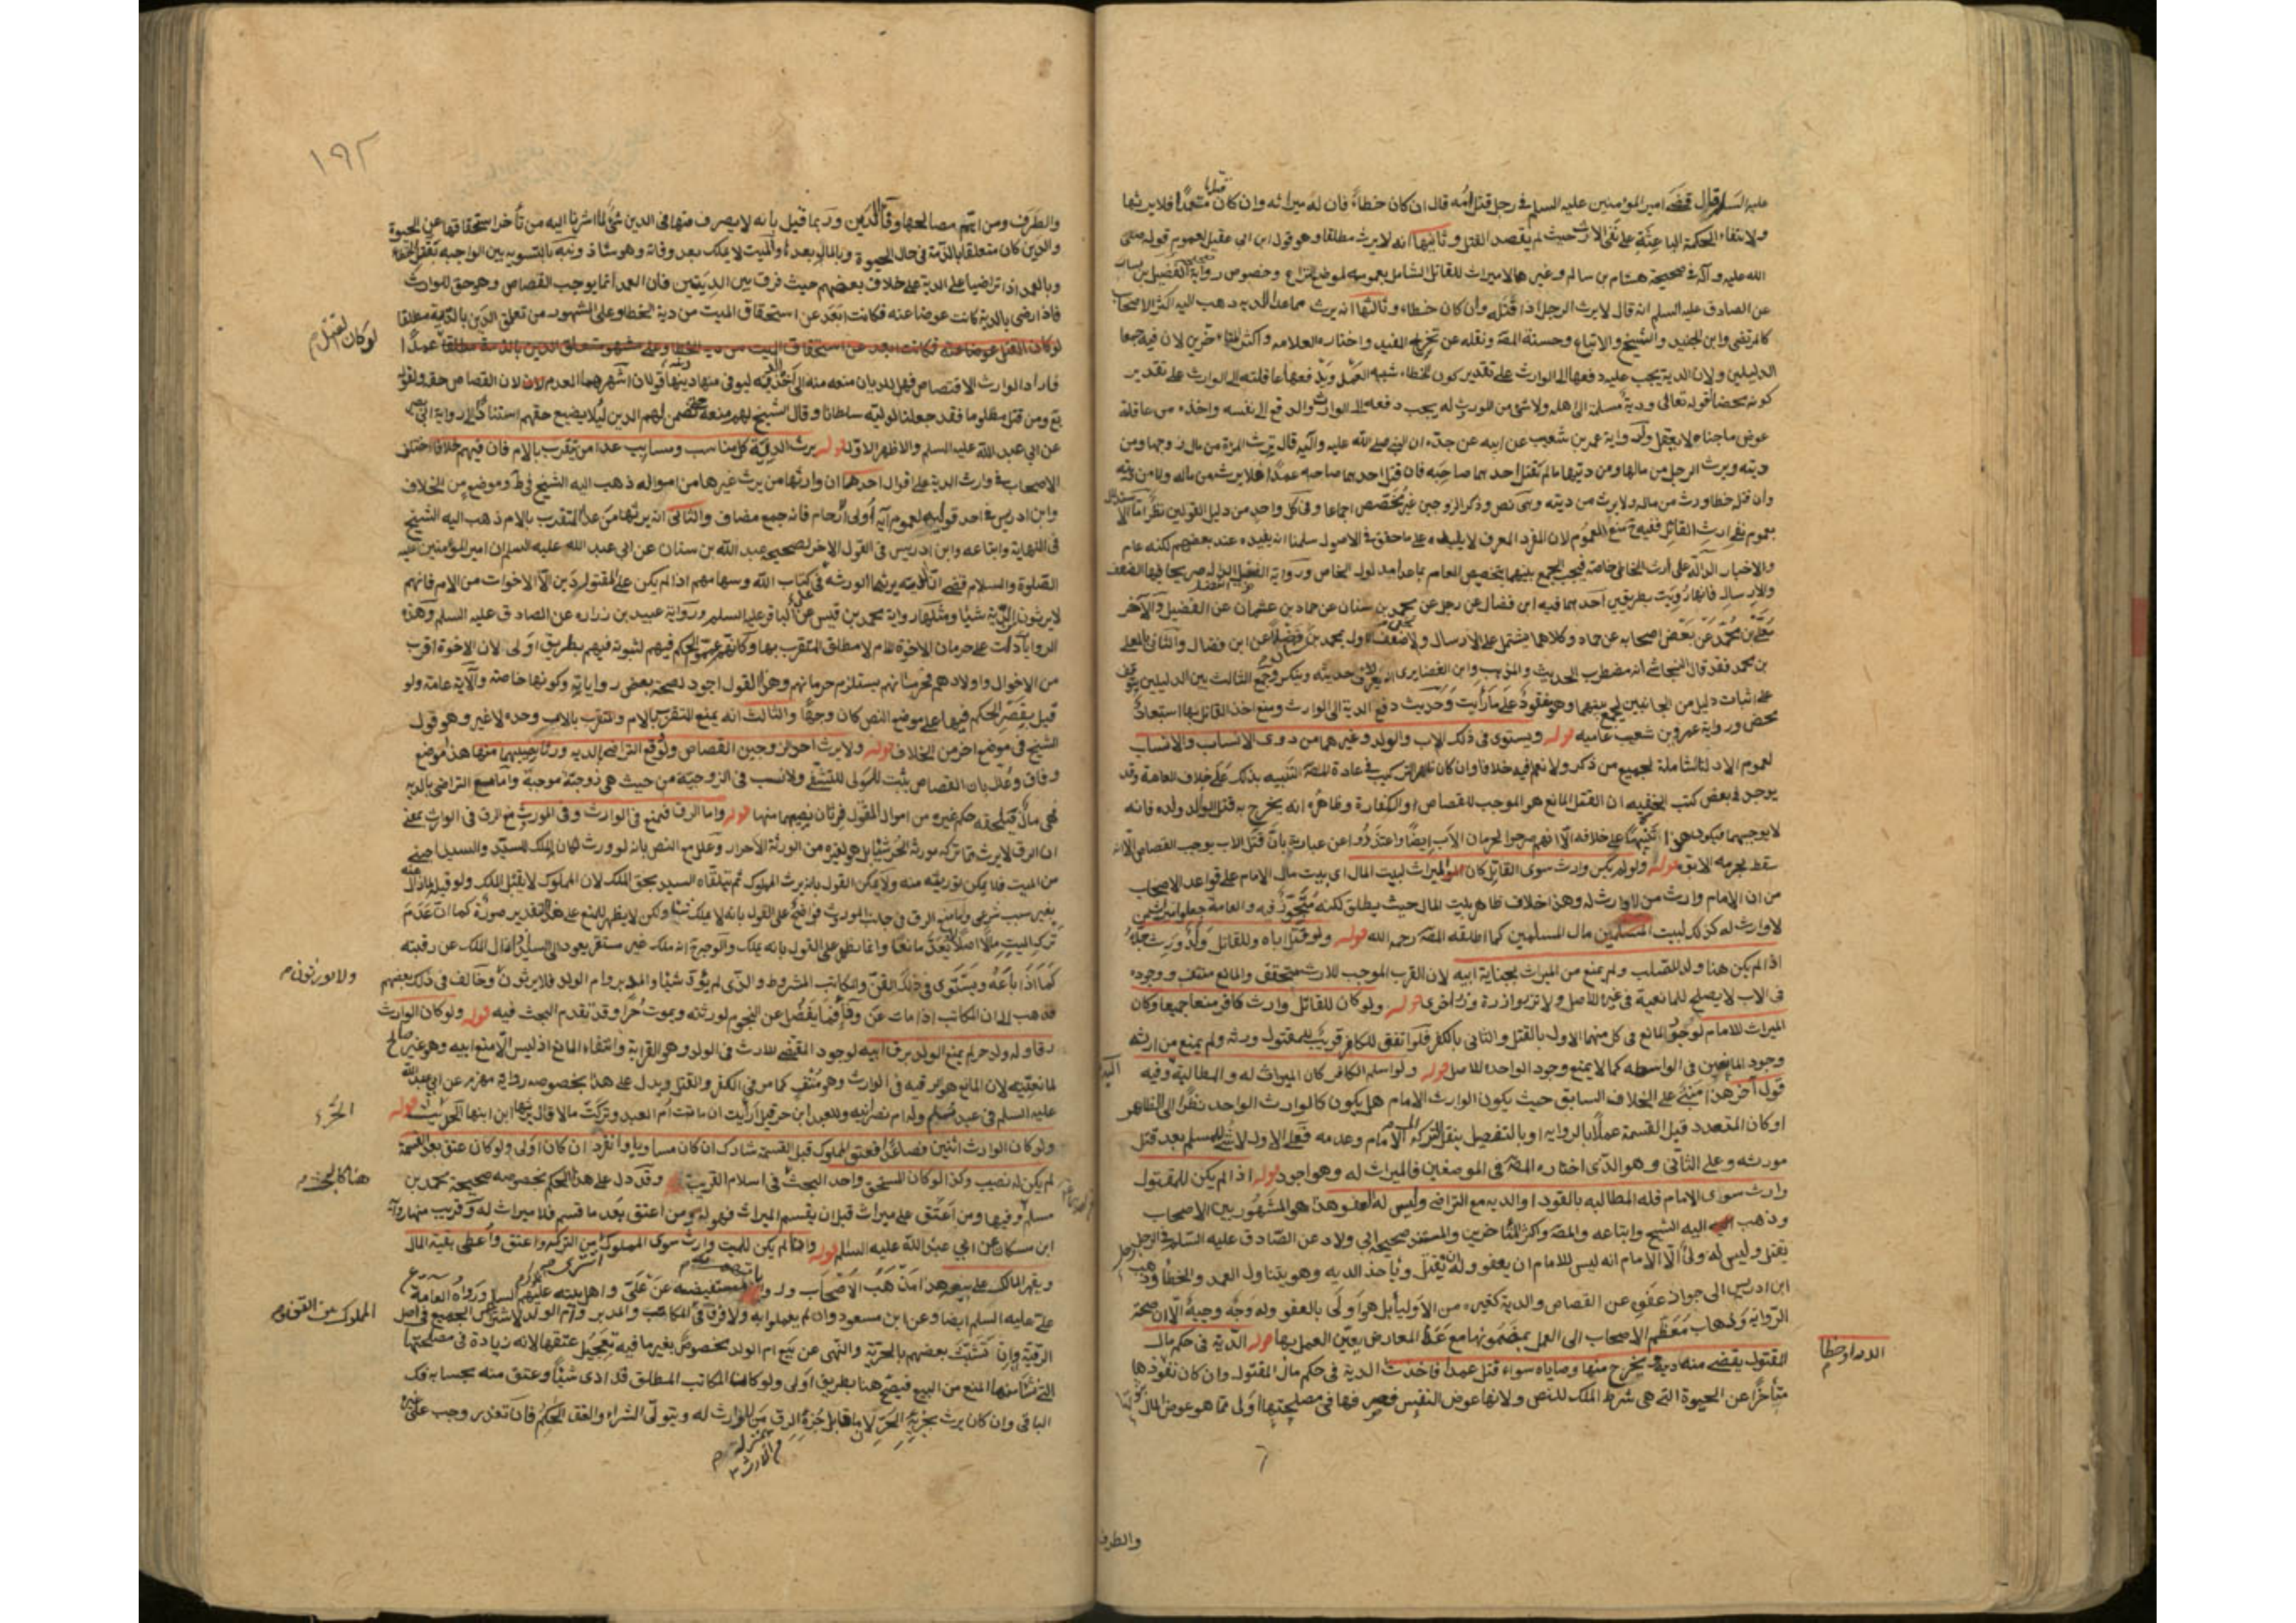 عليه السلام قال قضى امير المؤمنين عليه السلام في رجل قتل امه قال ان كان خطاء فان له ميراثه وان كان قتلها متعمدا فلا يرثها
ولانتفاء الحكمة الباعثة على نفي الارث حيث لم يقصد القتل وثانيها انه لا يرث مطلقا وهو قول ابن ابي عقيل لعموم قوله صلى
الله عليه وآله في صحيحة هشام بن سالم وغيرها لا ميراث للقاتل الشامل بعمومه لموضع النزاع وخصوص رواية الفضيل بن يسار
عن الصادق عليه السلم انه قال لا يرث الرجل اذا قتله وان كان خطاء وثالثها انه يرث مما عدا الديه ذهب اليه اكثر الاصحاب
كالمرتضى وابن الجنيد والشيخ والاتباع وحسنة المصَ ونقله عن تخريج المفيد واختاره العلامه واكثر المتاخرين لان فيه جمعا
الدليلين ولان الدية يجب عليه دفعها الى الوارث على تقدير كون الخطاء شبه العمل ويدفعها عاقلته الى الوارث على تقدير
كونه محضا لقوله تعالى ودية مسلمة الى اهله ولا شئ من الموروث له يجب دفعه الى الوارث والدفع الى نفسه واخذه من عاقلة
عوض ما جناه لا يعقل ولرواية عمر بن شعيب عن ابيه عن جده ان النبي صلى الله عليه وآله قال ترث المراة من مال زوجها ومن
ديته ويرث الرجل من مالها ومن ديتها ما لم يقتل احدهما صاحبه فان قتل احدهما صاحبه عمدا فلا يرث من ماله ولا من ديته
وان قتله خطا ورث من ماله ولا يرث من ديته وهي نص وذكر الزوجين غير مخصص اجماعا وفي كل واحد من دليل القولين نظر اما الاستدلال
بعموم نفي ارث القاتل ففيه منع العموم لان المفرد المعرف لا يفيده على ما حقق في الاصول سلمنا انه يفيده عند بعضهم لكنه عام
والاخبار الدالة على ارث الخاطئ خاصة فيجب الجمع بينهما بتخصيص العام بما عدا مدلول الخاص ورواية الفضيل صريحا فيها الضعف
والارسال فانها رويت بطريقين احدهما فيه ابن فضال عن رجل عن محمد بن سنان عن حماد بن عثمان عن الفضيل والآخر
معلى بن محمد عن بعض اصحابه عن حماد وكلاهما يشتمل على الارسال ولاضعف الاول بمحمد بن سنان فضلا عن ابن فضال والثاني بالمعلى
بن محمد فقد قال النجاشي انه مضطرب الحديث والمذهب وابن الغضايري انه يعرف حديثه وينكر وجمع الثالث بين الدليلين يتوقف
على اثبات دليل من الجانبين ليجمع بينهما وهو مفقود على ما رايت وحديث دفع الدية الى الوارث ومنع اخذ القاتل بها استبعاد
محض ورواية عمرو بن شعيب عاميه قوله ويستوى في ذلك الاب والولد وغيرهما من ذوى الانساب والاسباب
لعموم الادلة الشاملة لجميع من ذكر ولا نعلم فيه خلافا وان كان ظاهر التركيب في عادة المصَ التنبيه بذلك على خلاف العامة وقد
يوجد في بعض كتب الحنفيه ان القتل المانع هو الموجب للقصاص او الكفارة وظاهره انه يخرج به قتل الوالد ولده فانه
لا يوجبهما فيكون هذا تنبيها على خلافه الا انهم صرحوا لحرمان الاب ايضا واعتذروا عن عبارته بان قتل الاب يوجب القصاص الا انه
سقط لحرمه الابوة قوله ولو لم يكن وارث سوى القاتل كان الميراث لبيت المال اى بيت مال الامام على قواعد الاصحاب
من ان الامام وارث من لا وارث له وهذا خلاف ظاهر بيت المال حيث يطلق لكنه متجوز فيه والعامة جعلوا ميراث من
لا وارث له كذلك لبيت مال المسلمين كما اطلقه المصَ رحمه الله قوله ولو قتل اباه وللقاتل ولد ورث جده
اذا لم يكن هنا ولد للصلب ولم يمنع من الميراث بجناية ابيه لان القرب الموجب للارث متحقق والمانع منتف ووجوده
في الاب لا يصلح للمانعية في غير الاصل ولا تزر وازرة وزر اخرى قوله ولو كان للقاتل وارث كافر منعا جميعا وكان
الميراث للامام لوجود المانع في كل منهما الاول بالقتل والثاني بالكفر فلو اتفق للكافر قريب للمقتول ورثه ولم يمنع من ارثه
وجود المانعين في الواسطه كما لا يمنع وجود الواحد للاصل قوله ولو اسلم الكافر كان الميراث له والمطالبة وفيه
قول آخر هذا مبني على الخلاف السابق حيث يكون الوارث الامام هل يكون كالوارث الواحد نظرا الى الظاهر
او كان المتعدد قبل القسمة عملا بالروايه او بالتفصيل بنقل التركه الى الامام وعدمه فعلى الاول لا شئ للمسلم بعد قتل
مورثه وعلى الثاني وهو الذى اختاره المصَ في الموضعين فالميراث له وهو اجود قوله اذا لم يكن للمقتول
وارث سوى الامام فله المطالبه بالقود او الديه مع التراضى وليس له العفو هذا هو المشهور بين الاصحاب
وذهب اليه الشيخ واتباعه والمصَ واكثر المتاخرين والمستند صحيحة ابي ولاد عن الصادق عليه السلم في الرجل
يقتل وليس له ولى الا الامام انه ليس للامام ان يعفو وله ان يقتل وياخذ الديه وهو يتناول العمد والخطا وذهب
ابن ادريس الى جواز عفوه عن القصاص والدية كغيره من الاولياء بل هو اولى بالعفو وله وجه وجيه الا ان صحة
الرواية وذهاب معظم الاصحاب الى العمل بمضمونها مع عدم المعارض يعين العمل بها قوله الدية في حكم مال
المقتول يقضى منه دينه ويخرج منها وصاياه سواء قتل عمدا فاخذت الدية في حكم مال المقتول وان كان نفوذها
متأخرا عن الحيوة التي هي شرط الملك للنص ولانها عوض النفس فصرفها في مصلحتها اولى مما هو عوض المال
او خطا
والطرف
١٩٢
والطرف ومن اهم مصالحها وفاء الدين وربما قيل بانه لا يصرف منها في الدين شئ لما اشرنا اليه من تأخر استحقاقها عن الحيوة
والدين كان متعلقا بالذمة في حال الحيوة وبالمال بعدها والميت لا يملك بعد وفاته وهو شاذ ونبه بالتسويه بين الواجبه بقتل الخطاء
وبالعمد اذا تراضيا على الدية على خلاف بعضهم حيث فرق بين الديتين فان العمد انما يوجب القصاص وهو حق للوارث
فاذا رضى بالدية كانت عوضا عنه فكانت ابعد عن استحقاق الميت من دية الخطا وعلى المشهور من تعلق الدين بالدية مطلقا
لو كان القتل عمدا
فاراد الوارث الاقتصاص فهل للديان منعه منه الى اخذ الدية ليوفى منها دينها قولان اشهرهما العدم لان القصاص حقه ولقوله
تع ومن قتل مظلوما فقد جعلنا لوليه سلطانا وقال الشيخ لهم منعه حتى يضمن لهم الدين لئلا يضيع حقهم استنادا الى رواية ابي بصير
عن ابي عبد الله عليه السلم والاظهر الاول قوله يرث الدية كل مناسب ومسابب عدا من يتقرب بالام فان فيهم خلافا اختلف
الاصحاب في وارث الدية على اقوال احدها ان وارثها من يرث غيرها من امواله ذهب اليه الشيخ في ط وموضع من الخلاف
وابن ادريس في احد قوليه لعموم آية اولى الارحام فانه جمع مضاف والثاني انه يرثها من عدا المتقرب بالام ذهب اليه الشيخ
في النهاية واتباعه وابن ادريس في القول الاخر لصحيحة عبد الله بن سنان عن ابي عبد الله عليه السلام ان امير المؤمنين عليه
الصلوة والسلام قضى ان الدية يرثها الورثة في كتاب الله وسهامهم اذا لم يكن على المقتول دين الا الاخوات من الام فانهم
لا يرثون من الدية شيئا ومثلها رواية محمد بن قيس عن الباقر عليه السلم ورواية عبيد بن زراره عن الصادق عليه السلم وهذه
الروايات دلت على حرمان الاخوة للام لا مطلق المتقرب بها وكانهم عمموا الحكم فيهم لثبوته فيهم بطريق اولى لان الاخوة اقرب
من الاخوال واولادهم فحرمانهم يستلزم حرمانهم وهذا القول اجود لصحة بعض رواياته وكونها خاصة والآية عامة ولو
قيل بقصر الحكم فيها على موضع النص كان وجها والثالث انه يمنع المتقرب بالام ويرثها المتقرب بالاب وحده لا غير وهو قول
الشيخ في موضع اخر من الخلاف قوله ولا يرث احد الزوجين القصاص ولو وقع التراضى بالديه ورثا نصيبهما منها هذا موضع
وفاق وعلل بان القصاص يثبت للولى للتشفى ولا نسب في الزوجية من حيث هي زوجية موجبة واما مع التراضى بالديه
فهي مال فيلحقه حكم غيره من اموال المقتول فيرثان نصيبهما منها قوله واما الرق فيمنع في الوارث وفي الموروث مع الرق في الوارث بمعنى
ان الرق لا يرث مما تركه مورثه الحر شيئا بل هو لغيره من الورثة الاحرار وعلل مع النص بانه لو ورث لكان الملك للسيد والسيد اجنبي
من الميت فلا يمكن توريثه منه ولا يمكن القول بانه يرث المملوك ثم يتلقاه السيد بحق الملك لان المملوك لا يقبل الملك
بغير سبب شرعي واما منع الرق في جانب الموروث فواضح على القول بانه لا يملك شيئا ولكن لا يظهر للمنع على هذا التقدير صورة كما ان عدم
ترك الميت مالا اصلا لا يعد مانعا وانما يظهر على القول بانه يملك والوجه ح انه ملك غير مستقر يعود الى السيد اذا زال الملك عن رقبته
كما اذا باعه ويستوى في ذلك القن والمكاتب المشروط والذى لم يؤد شيئا والمدبر وام الولد فلا يرثون ولا يورثون وخالف في ذلك بعضهم
فذهب الى ان المكاتب اذا مات عن وفاء فما يفضل عن النجوم لورثته ويموت حرا وقد تقدم البحث فيه قوله ولو كان الوارث
رقا وله ولد حر لم يمنع الولد برق ابيه لوجود المقتضى للارث في الولد وهو القرابة وانتفاء المانع اذ ليس الا منع ابيه وهو غير صالح
لمانعيته لان المانع هو رقيه في الوارث وهو منتف كما مر في الكفر والقتل ويدل على هذا بخصوصه رواية مهزم عن ابي عبد الله
عليه السلم في عبد مسلم وله ام نصرانيه وللعبد ابن حر قيل ارأيت ان ماتت ام العبد وتركت مالا قال يرثها ابن ابنها الحر قوله
ولو كان الوارث اثنين فصاعدا فعتق المملوك قبل القسمة شارك ان كان مساويا وانفرد ان كان اولى ولو كان عتق بعد القسمة
لم يكن له نصيب وكذا لو كان المستحق واحدا البحث في اسلام القريب وقد دل على هذا الحكم بخصوصه صحيحة محمد بن
مسلم وفيها ومن اعتق على ميراث قبل ان يقسم الميراث فهو له ومن اعتق بعد ما قسم فلا ميراث له وقريب منها رواية
ابن مسكان عن ابي عبد الله عليه السلم قوله واذا لم يكن للميت وارث سوى المملوك اشترى من التركه واعتق واعطى بقية المال
ويقهر المالك على بيعه هذا مذهب الاصحاب مستفيضه عن على واهل بيته عليهم السلم ورواه العامة
على عليه السلم ايضا وعن ابن مسعود وان لم يعملوا به ولا فرق في المكاتب والمدبر وام الولد لاشتراك الجميع في اصل
الرقية وان تشبث بعضهم بالحرية والنهى عن بيع ام الولد مخصوص بغير ما فيه تعجيل عتقها لانه زيادة في مصلحتها
التي نشا منها المنع من البيع فيصح هنا بطريق اولى ولو كان المكاتب المطلق قد ادى شيئا وعتق منه بحسابه فك
الباقى وان كان يرث بجزئه الحر لان ما قابل جزءه الرق من الارث بمنزلة من لا وارث له ويتولى الشراء والعتق الحاكم فان تعذر وجب على غيره
لو كان القتل م
ولا يورثون م
الحر